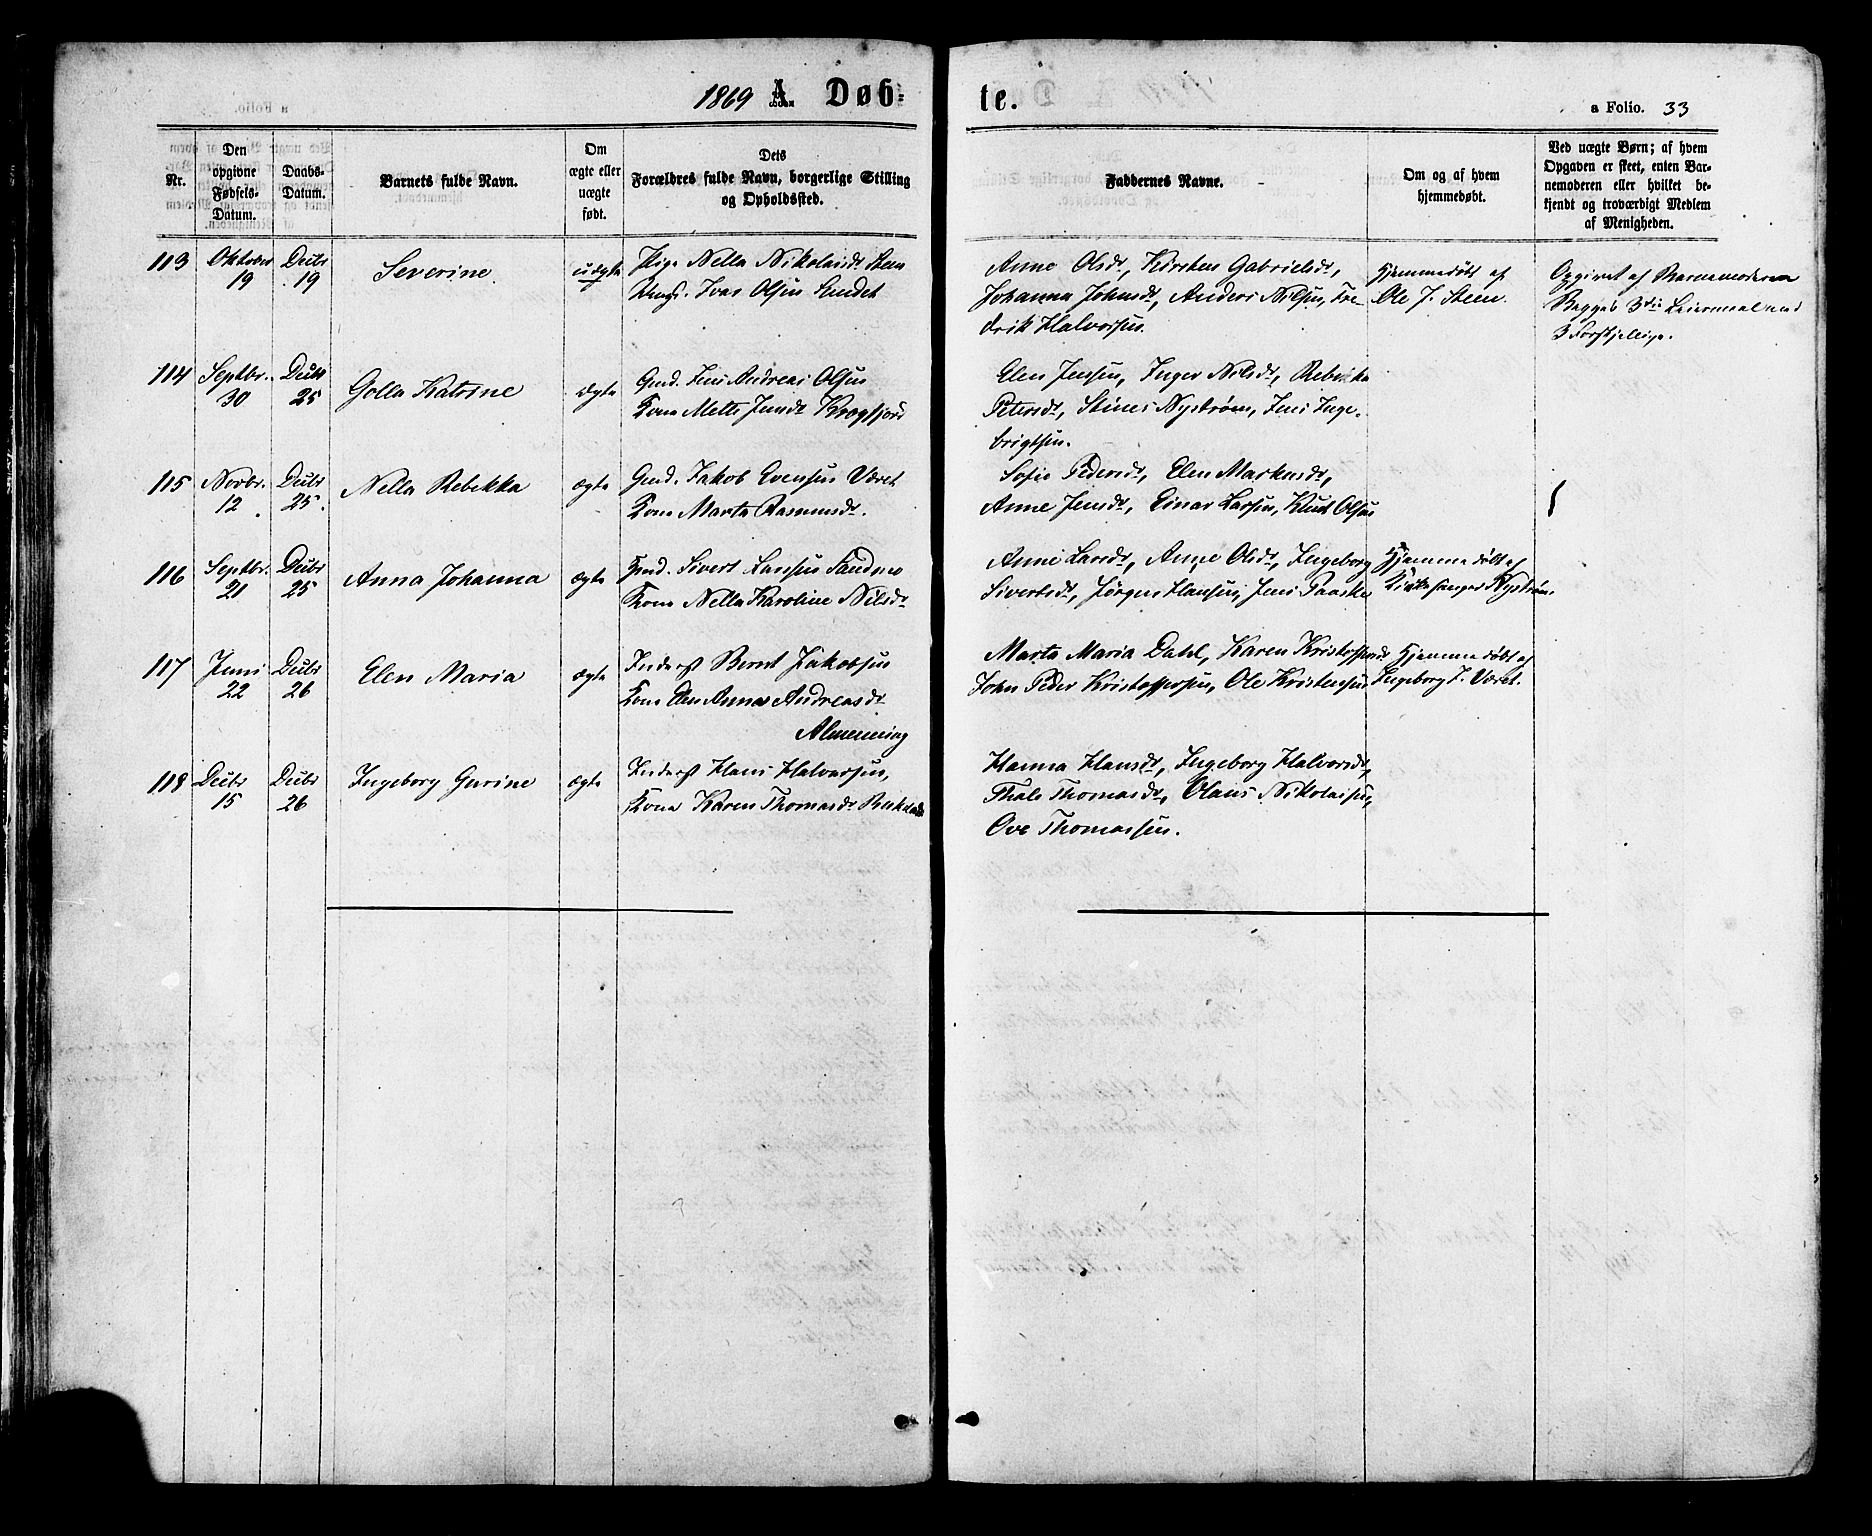 1869 A Døb-
te.
a Folio. 33
Nr.
Den opgivne Fødsels-Datum.
Daabs-Datum.
Barnets fulde Navn.
Om ægte eller uægte født.
Dets Forældres fulde Navn, borgerlige Stilling og Opholdssted.
Faddernes Navne.
Om og af hvem hjemmedøbt.
Ved uægte Børn; af hvem Opgaven er skeet, enten Barnemoderen eller hvilket bekjendt og troværdigt Medlem af Menigheden.
113 Oktober 19 Decbr 19 Severine uægte
Pige Nella Nikolaisdt. Steen
Ungk. Ivar Olsen Sundet
Anne Olsdt, Kirsten Gabrielsdt,
Johanna Johnsdt, Anders Nilsen, Fre-
drik Halvorsen.
Hjemmedøbt af
Ole J. Steen.
Opgivet af Barnemoderen
Begges 3die Leiermaal med
3 Forskjellige.
114 Septbr. 30 Decbr 25 Golla Katrine ægte
Gmd. Jens Andreas Olsen
Kone Mette Jensdt Krogfjord
Elen Jensen, Inger Nilsdt, Rebekka
Petersdt, Stines Nystrøm, Jens Inge-
brigtsen.
115 Novbr. 12 Decbr 25. Nella Rebekka ægte
Gmd. Jakob Evensen Været
Kone Marta Rasmusdt.
Sofie Pedersdt, Elen Markusdt,
Anne Jensdt, Einar Larsen, Knut Olsen
116 Septbr. 21 Decbr 25 Anna Johanna ægte
Gmd. Sivert Hansen Sandmo
Kone Nella Karoline Nilsdt
Anne Larsdt, Anne Olsdt, Ingeborg
Sivertsdt, Jørgen Hansen, Jens Paaske
Hjemmedøbt af
Kirkesanger Nystrøm.
117 Juni 22 Decbr 26 Elen Maria ægte
Inderst Bernt Jakobsen
Kone Elen Anna Andreasdt
Almenning
Marta Maria Dahl, Karen Kristoffersdt
John Peder Kristoffersen, Ole Kristensen
Hjemmedøbt af
Ingeborg J. Været.
118 Decbr 15 Decbr 26 Ingeborg Gurine ægte
Inderst Hans Halvorsen,
Kone Karen Thomasdt
Hanna Hansdt, Ingeborg Halvorsdt,
Thale Thomasdt, Olaus Nikolaisen,
Ove Thomassen.